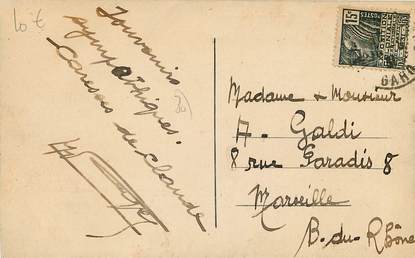 10 €
Souvenirs
sympathiques.
Caresses de Claude
15c
POSTES
GARD
Madame & Monsieur
A. Galdi
8 rue Paradis 8
Marseille
B. du. Rhône